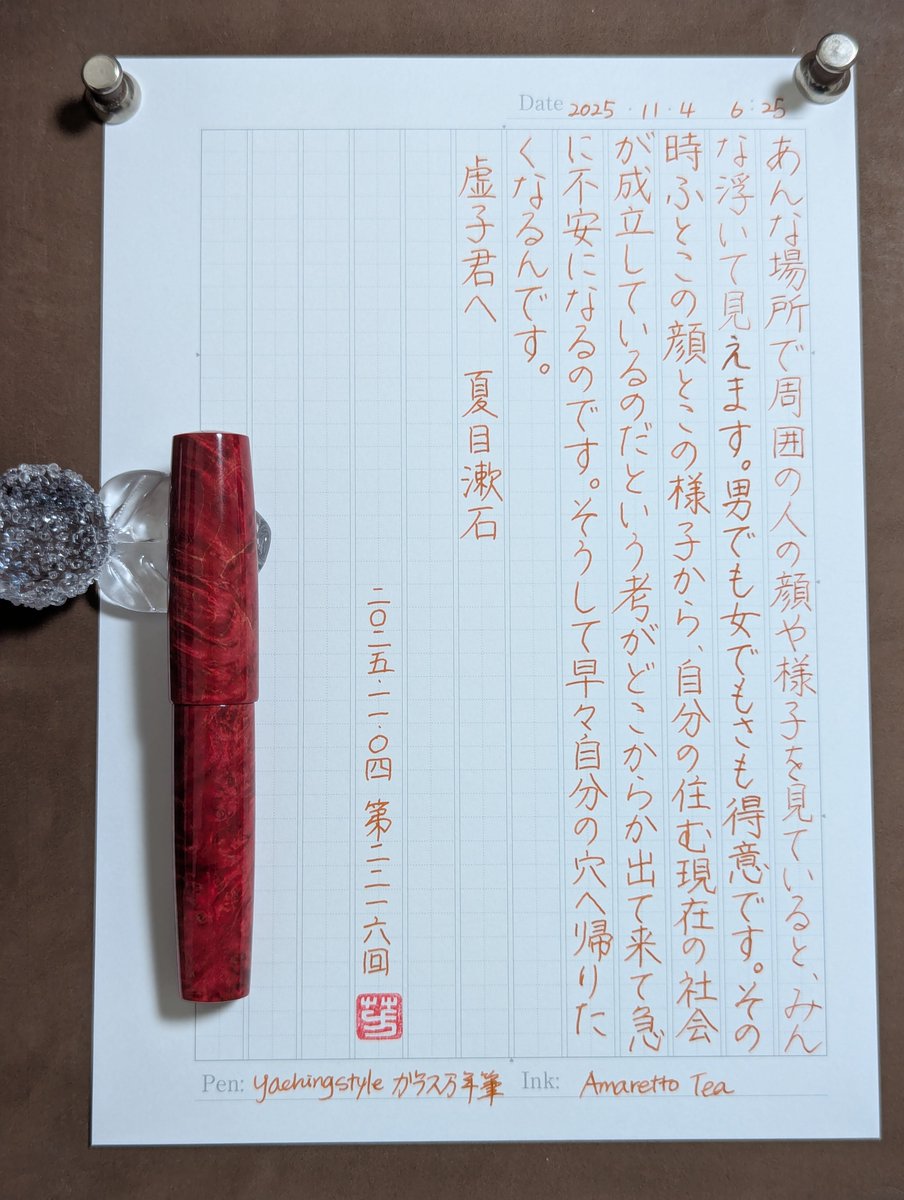 Date 2025・11・4 6:25
あんな場所で周囲の人の顔や様子を見ていると、みん
な浮いて見えます。男でも女でもさも得意です。その
時ふとこの顔とこの様子から、自分の住む現在の社会
が成立しているのだという考がどこからか出て来て急
に不安になるのです。そうして早々自分の穴へ帰りた
くなるんです。
虚子君へ 夏目漱石
二〇二五・一一・〇四 第二二一六回
Pen: yaching style ガラス万年筆 Ink: Amaretto Tea